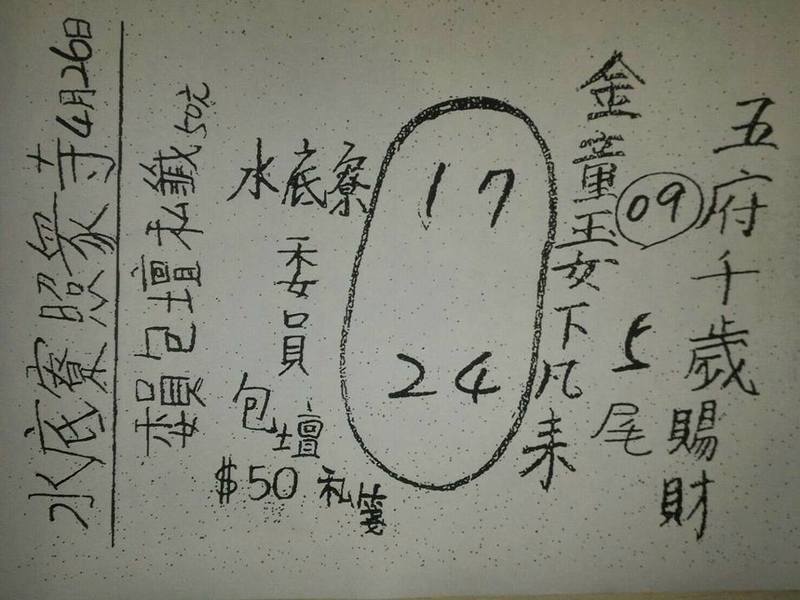 五府千歲賜財
09
5尾
金童玉女下凡來
17
24
水底寮
委員
包壇
$50 私
委員包壇私籤50元
水底寮照眾寺4月26日